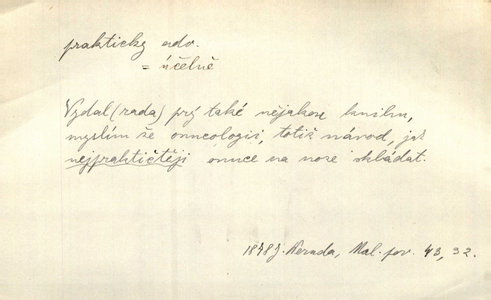 prakticky adv.
= účelně
Vydal (rada) prý také nějakou knihu,
myslím že onucologii, totiž návod, jak
nejpraktičtěji onuce na noze skládat.
1878 J. Neruda, Mal. pov. 43, 32.